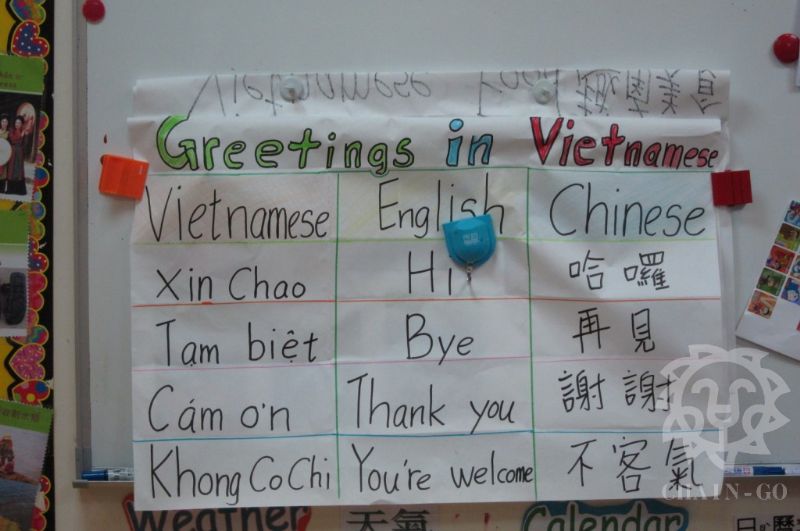 Vietnamese Food 越南美食
Greetings in Vietnamese
Vietnamese English Chinese
Xin Chao Hi 哈囉
Tạm biệt Bye 再見
Cám ơn Thank you 謝謝
Khong Co Chi You're welcome 不客氣
CHAIN-GO
Weather 天氣 Calendar 日曆